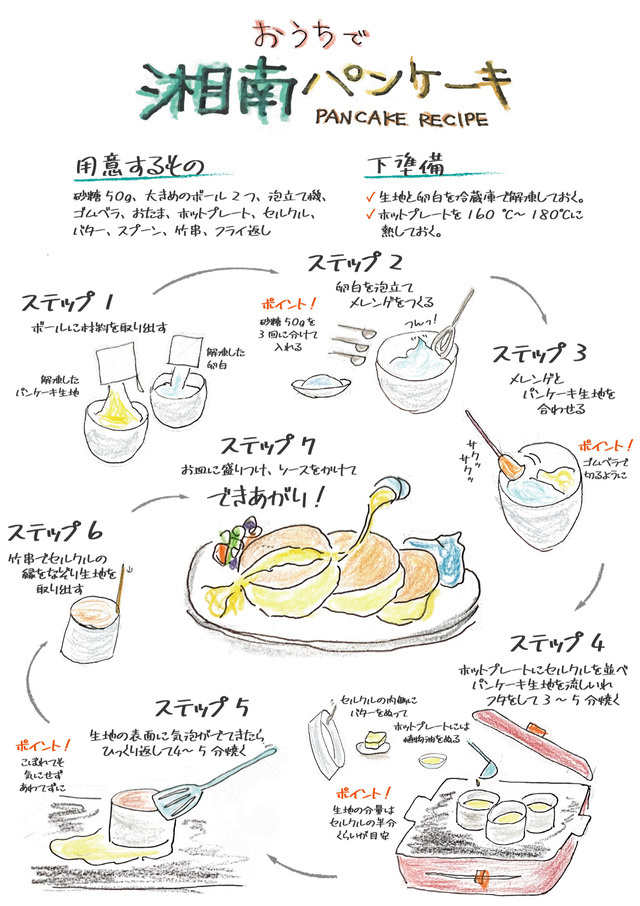 おうちで
湘南パンケーキ
PANCAKE RECIPE
用意するもの
砂糖50g、大きめのボール2つ、泡立て機、
ゴムベラ、おたま、ホットプレート、セルクル、
バター、スプーン、竹串、フライ返し
下準備
✓生地と卵白を冷蔵庫で解凍しておく。
✓ホットプレートを160℃〜180℃に
熱しておく。
ステップ1
ボールに材料を取り出す
解凍した
パンケーキ生地
解凍した
卵白
ステップ2
卵白を泡立て
メレンゲをつくる
ポイント!
砂糖50gを
3回に分けて
入れる
つんっ!
ステップ3
メレンゲと
パンケーキ生地を
合わせる
サクッ
サクッ
ポイント!
ゴムベラで
切るように
ステップ4
ホットプレートにセルクルを並べ
パンケーキ生地を流しいれ
フタをして3〜5分焼く
セルクルの内側に
バターをぬって
ホットプレートには
植物油をぬる
ポイント!
生地の分量は
セルクルの半分
くらいが目安
ステップ5
生地の表面に気泡がでてきたら
ひっくり返して4〜5分焼く
ポイント!
こぼれても
気にせず
あわてずに
ステップ6
竹串でセルクルの
縁をなぞり生地を
取り出す
ステップ7
お皿に盛りつけ、ソースをかけて
できあがり!